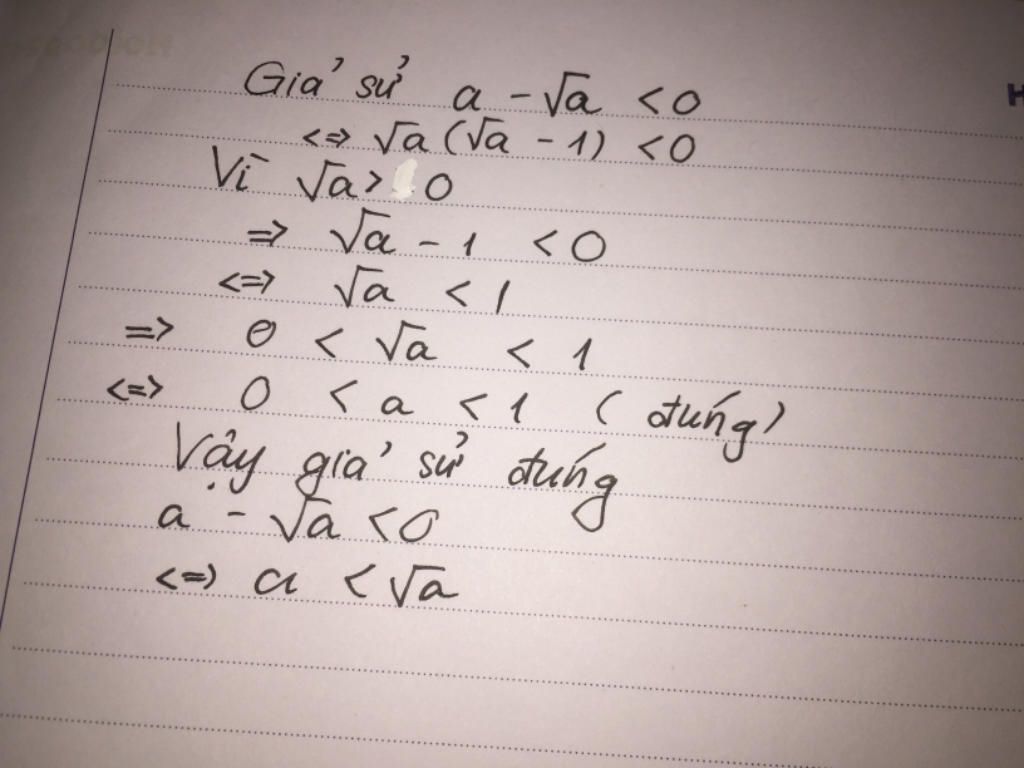 Giả sử a - √a < 0
<=> √a (√a - 1) < 0
Vì √a > 0
=> √a - 1 < 0
<=> √a < 1
=> 0 < √a < 1
<=> 0 < a < 1 ( đúng)
Vậy giả sử đúng
a - √a < 0
<=> a < √a